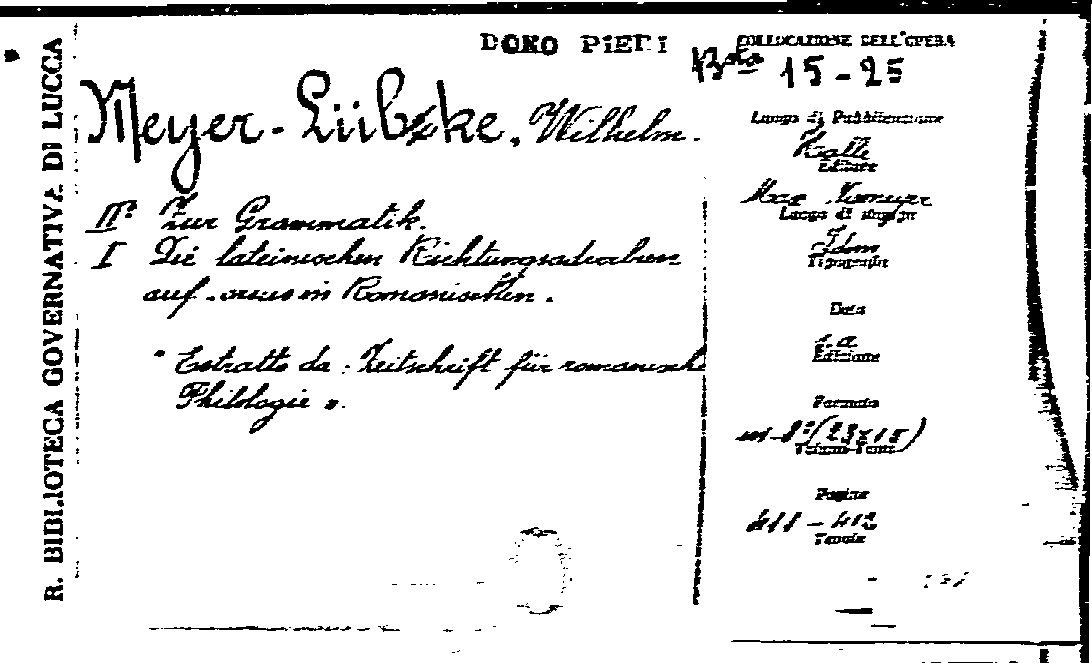 R. BIBLIOTECA GOVERNATIVA DI LUCCA
DONO PIERI
COLLOCAZIONE DELL'OPERA
Bta 15-25
Meyer-Lübke, Wilhelm.
IIº Zur Grammatik.
I Die lateinischen Richtungsadverbien
auf -orsus im Romanischen.
"Estratto da: Zeitschrift für romanische
Philologie".
Luogo di Pubblicazione
Halle
Editore
Max Niemeyer
Luogo di stampa
Idem
Tipografia
Data
s.a
Edizione
Formato
in-8º (23x15)
Volume-Tomo
Pagine
411-412
Tavole